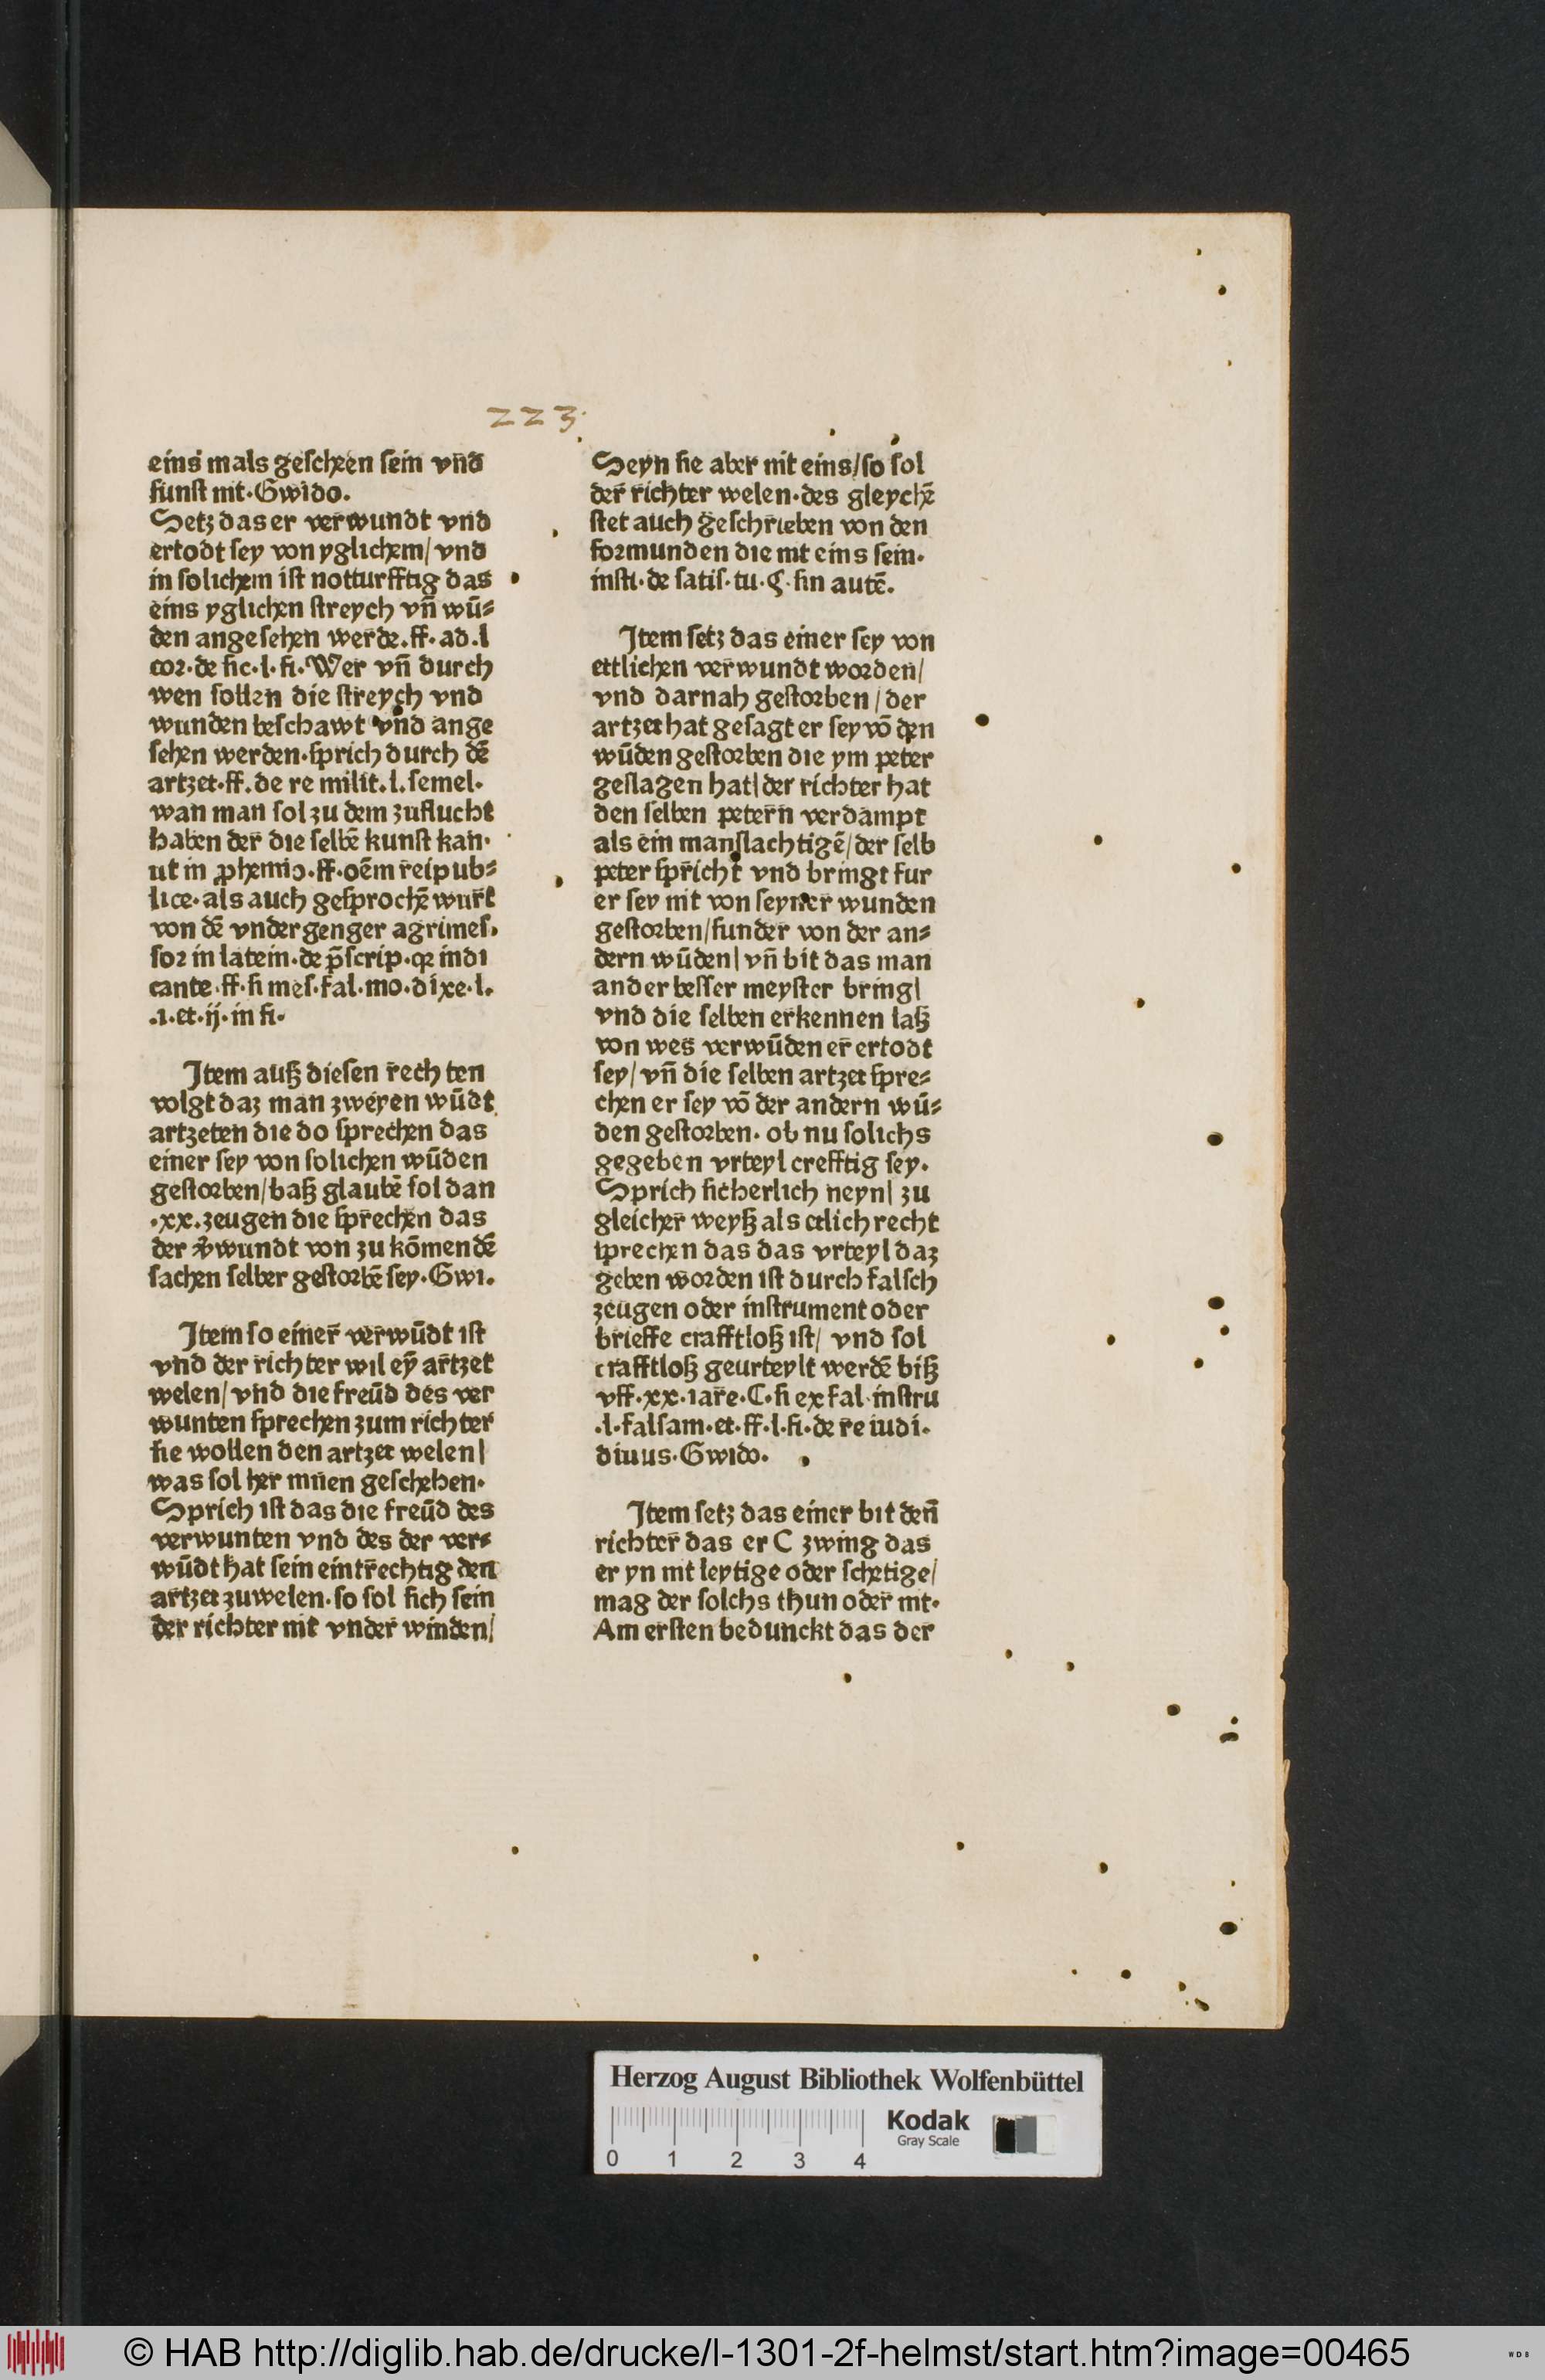 223.
eins mals gescheen sein vnd
sunst nit. Gwido.
Setz das er verwundt vnd
ertodt sey von yglichem/ vnd
in solichem ist notturfftig das
eins yglichen streych vn̄ wū⸗
den angesehen werde. ff. ad. l
cor. de sic. l. fi. Wer vn̄ durch
wen sollen die streych vnd
wunden beschawt vnd ange
sehen werden. sprich durch dē
artzet. ff. de re milit. l. semel.
wan man sol zu dem zuflucht
haben der die selbē kunst kan.
ut in ꝓhemio. ff. oēm reipub⸗
lice. als auch gesprochē wurt
von dē vndergenger agrimes.
sor in latein. de p̄scrip. qꝛ indi
cante. ff. si mes. fal. mo. dixe. l.
.1. et. ij. in fi.
Item auß diesen rechten
volgt daz man zweyen wūdt
artzeten die do sprechen das
einer sey von solichen wūden
gestorben/ baß glaubē sol dan
.xx. zeugen die sprechen das
der v̄wundt von zu kōmendē
sachen selber gestorbē sey. Gwi.
Item so einer verwūdt ist
vnd der richter wil eȳ artzet
welen/ vnd die freūd des ver
wunten sprechen zum richter
sie wollen den artzet welen/
was sol her innen geschehen.
Sprich ist das die freūd des
verwunten vnd des der ver⸗
wūdt hat sein eintrechtig den
artzet zuwelen. so sol sich sein
der richter nit vnder winden/
Seyn sie aber nit eins/ so sol
der richter welen. des gleychē
stet auch geschrieben von den
formunden die nit eins sein.
insti. de satis. tu. §. sin autē.
Item setz das einer sey von
ettlichen verwundt worden/
vnd darnah gestorben/ der
artzet hat gesagt er sey vō den
wūden gestorben die ym peter
geslagen hat/ der richter hat
den selben petern verdampt
als ein manslachtigē/ der selb
peter spricht vnd bringt fur
er sey nit von seyner wunden
gestorben/ sunder von der an⸗
dern wūden/ vn̄ bit das man
ander besser meyster bring/
vnd die selben erkennen laß
von wes verwūden er ertodt
sey/ vn̄ die selben artzet spre⸗
chen er sey vō der andern wū⸗
den gestorben. ob nu solichs
gegeben vrteyl crefftig sey.
Sprich sicherlich neyn/ zu
gleicher weyß als etlich recht
sprechen das das vrteyl daz
geben worden ist durch falsch
zeugen oder instrument oder
brieffe crafftloß ist/ vnd sol
crafftloß geurteylt werdē biß
vff. xx. iare. C. si ex fal. instru
.l. falsam. et. ff. l. fi. de re iudi.
diuus. Gwido.
Item setz das einer bit den
richter das er C zwing das
er yn nit leytige oder schetige/
mag der solchs thun oder nit.
Am ersten bedunckt das der
Herzog August Bibliothek Wolfenbüttel
Kodak
Gray Scale
0 1 2 3 4
© HAB http://diglib.hab.de/drucke/l-1301-2f-helmst/start.htm?image=00465